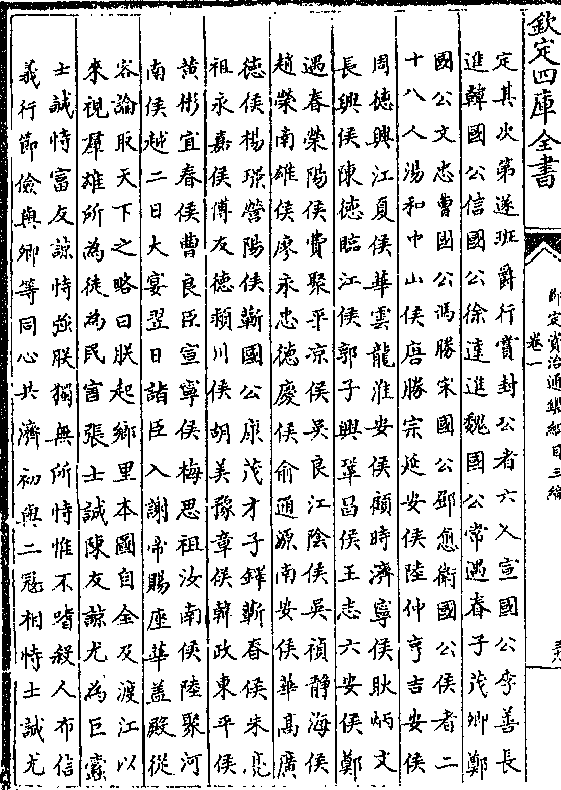 欽定四庫全書
御定資治通鑑綱目三編
卷一
定其次第遂班爵行賞封公者六人宣國公李善長
進韓國公信國公徐達進魏國公常遇春子茂卿鄭
國公文忠曹國公馮勝宋國公鄧愈衛國公侯者二
十八人湯和中山侯唐勝宗延安侯陸仲亨吉安侯
周德興江夏侯華雲龍淮安侯顧時濟寧侯耿炳文
長興侯陳德臨江侯郭子興鞏昌侯王志六安侯鄭
遇春滎陽侯費聚平凉侯吳良江陰侯吳禎靜海侯
趙榮南雄侯廖永忠德慶侯俞通源南安侯華高廣
德侯楊璟營陽侯蘄國公康茂才子鐸蘄春侯朱亮
祖永嘉侯傅友德潁川侯胡美豫章侯韓政東平侯
黃彬宜春侯曹良臣宣寧侯梅思祖汝南侯陸聚河
南侯越二日大宴翌日諸臣入謝帝賜座華盖殿從
容論取天下之略曰朕起鄉里本圖自全及渡江以
來視羣雄所為徒為民害張士誠陳友諒尤為巨蠹
士誠恃富友諒恃強朕獨無所恃惟不嗜殺人布信
義行節儉與卿等同心共濟初與二冦相恃士誠尤